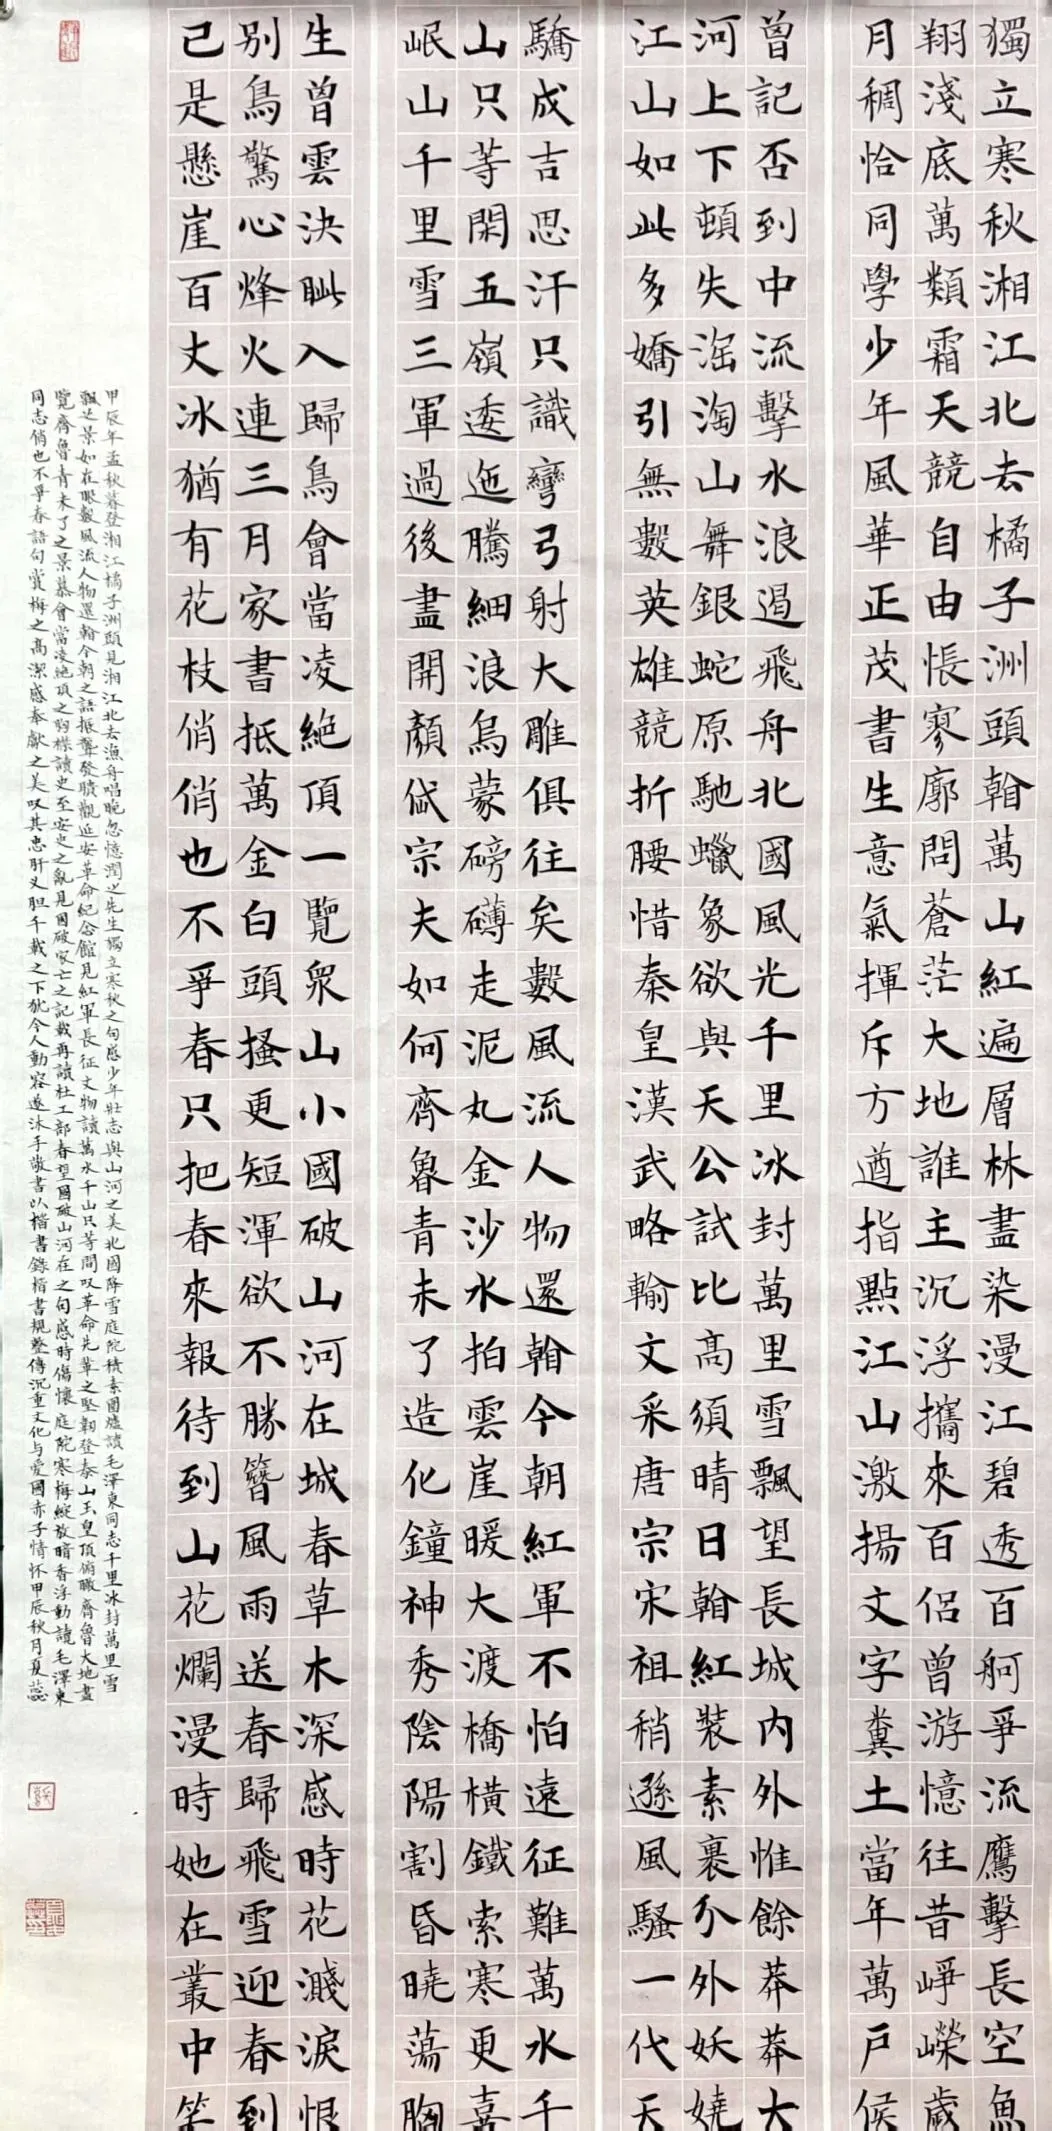 獨立寒秋湘江北去橘子洲頭翰萬山紅遍層林盡染漫江碧透百舸爭流鷹擊長空魚
翔淺底萬類霜天競自由悵寥廓問蒼茫大地誰主沉浮攜來百侶曾游憶往昔崢嶸歲
月稠恰同學少年風華正茂書生意氣揮斥方遒指點江山激揚文字糞土當年萬戶侯
曾記否到中流擊水浪遏飛舟北國風光千里冰封萬里雪飄望長城內外惟餘莽莽大
河上下頓失滔淘山舞銀蛇原馳蠟象欲與天公試比高須晴日翰紅裝素裹分外妖嬈
江山如此多嬌引無數英雄競折腰惜秦皇漢武略輸文采唐宗宋祖稍遜風騷一代天
驕成吉思汗只識彎弓射大雕俱往矣數風流人物還翰今朝紅軍不怕遠征難萬水千
山只等閑五嶺委迤騰細浪烏蒙磅礴走泥丸金沙水拍雲崖暖大渡橋橫鐵索寒更喜
岷山千里雪三軍過後盡開顏岱宗夫如何齊魯青未了造化鐘神秀陰陽割昏曉蕩胸
生曾雲決眦入歸鳥會當凌絕頂一覽眾山小國破山河在城春草木深感時花濺淚恨
別鳥驚心烽火連三月家書抵萬金白頭搔更短渾欲不勝簪風雨送春歸飛雪迎春到
已是懸崖百丈冰猶有花枝俏俏也不爭春只把春來報待到山花爛漫時她在叢中笑
甲辰年孟秋暮登湘江橘子洲頭見湘江北去漁舟唱晚忽憶潤之先生獨立寒秋之句感少年壯志與山河之美北國降雪庭院積素圍爐讀毛澤東同志千里冰封萬里雪
飄之景如在眼數風流人物還翰今朝之語振聾發聵觀延安革命紀念館見紅軍長征文物讀萬水千山只等閑嘆革命先輩之堅韌登泰山玉皇頂俯瞰齊魯大地盡
覽齊魯青未了之景慕會當凌絕頂之胸襟讀史至安史之亂見國破家亡之記載再讀杜工部春望國破山河在之句感時傷懷庭院寒梅綻放暗香浮動讀毛澤東
同志俏也不爭春語句賞梅之高潔感奉獻之美嘆其忠肝义胆千載之下猶令人動容遂沐手敬書以楷書錄楷書規整傳沉重文化与愛國赤子情怀甲辰秋月夏蕊